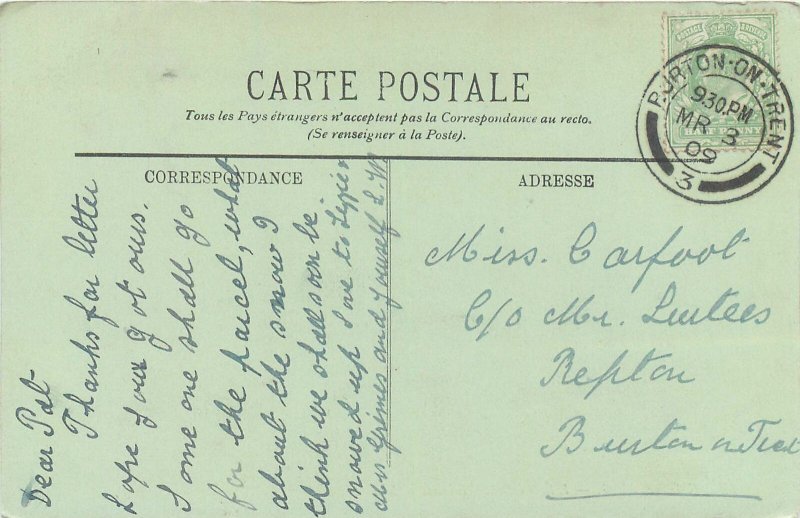 CARTE POSTALE
Tous les Pays étrangers n'acceptent pas la Correspondance au recto.
(Se renseigner à la Poste).
CORRESPONDANCE
ADRESSE
POSTAGE
HALF PENNY
BURTON-ON-TRENT
9.30.PM
MR 3
09
3
Dear Pat
Thanks for letter
hope you got ours.
Some one shall go
for the parcel, what
about the snow I
think we shall soon be
snowed up love to
Mrs Grimes and yourself L.M
Miss. Carfoot
C/o Mr.
Repton
Burton on Trent